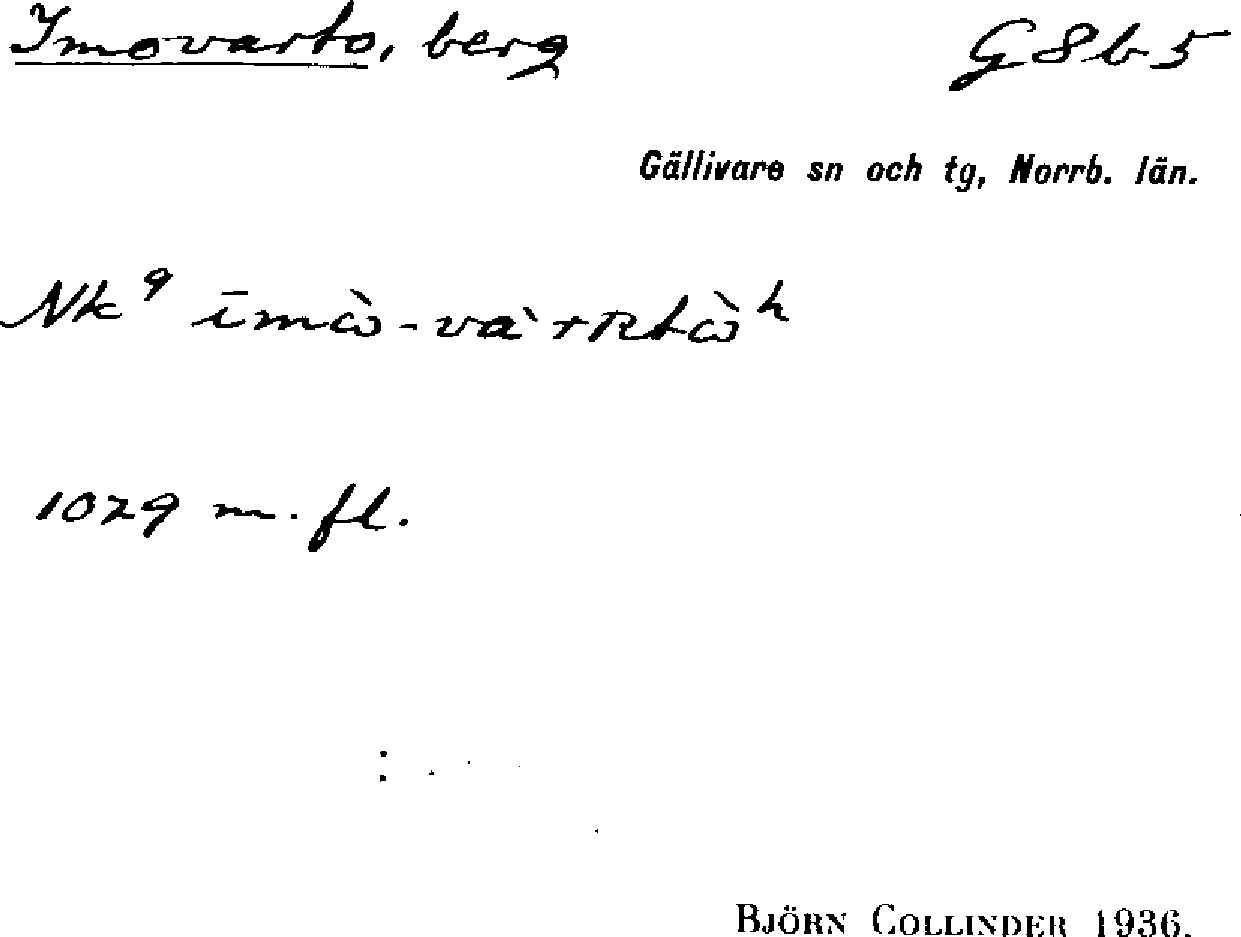 Imovarto, berg G8b5
Gällivare sn och tg, Norrb. län.
Nk⁹ īmὼ-vàrRtὼʰ
1029 m. fl.
BJÖRN COLLINDER 1936.